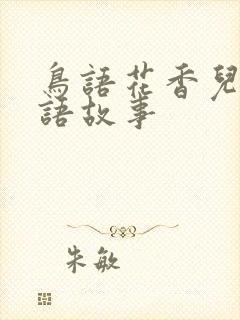 鳥語花香兒
語故事
朱敏